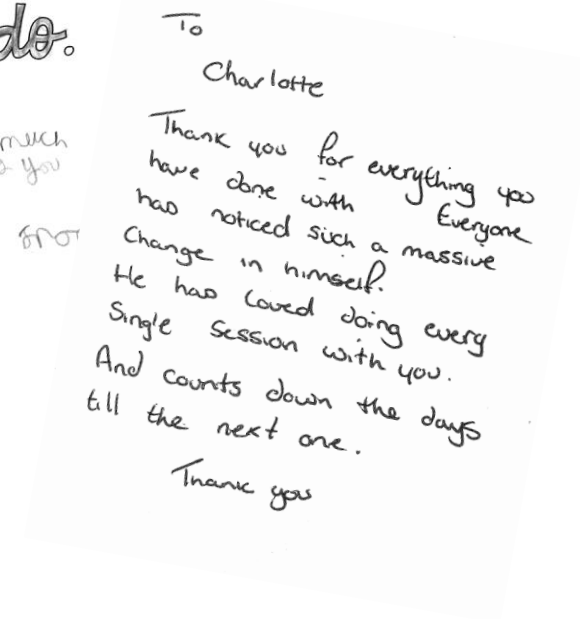 do.
much
you
To
Charlotte
Thank you for everything you
have done with Everyone
has noticed such a massive
Change in himself.
He has loved doing every
Single Session with you.
And counts down the days
till the next one.
Thank you